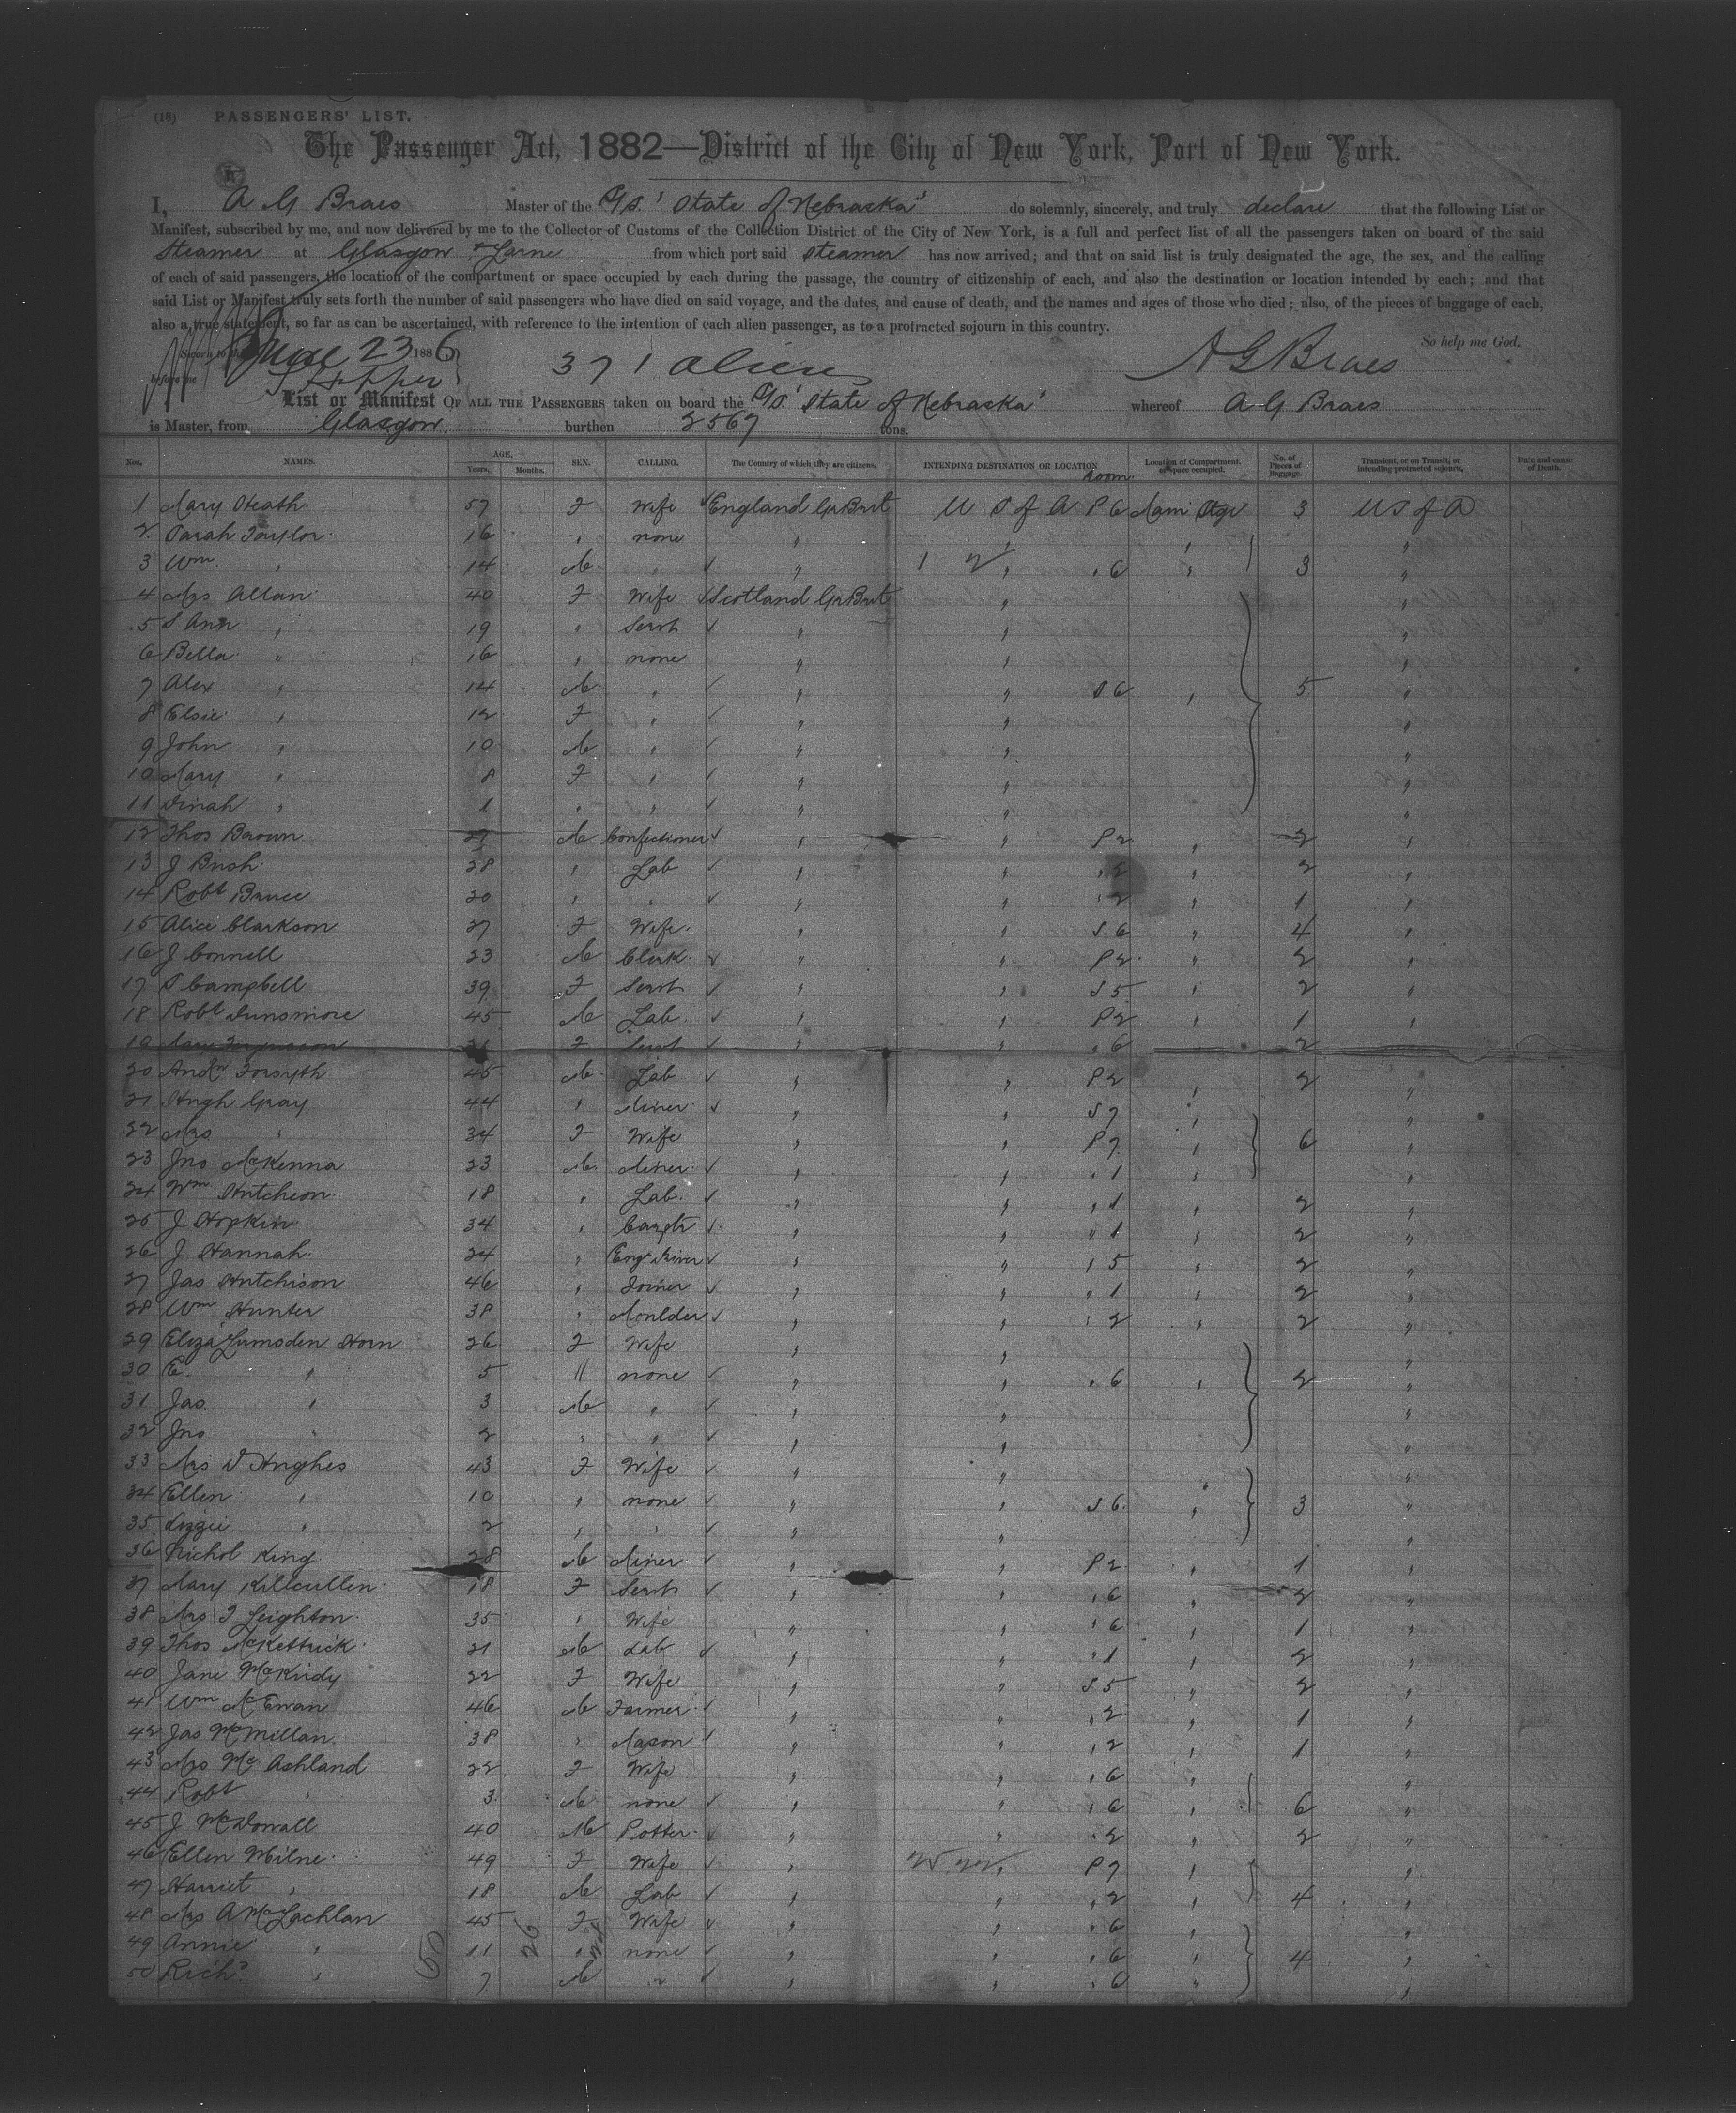 (18) PASSENGERS' LIST.
The Passenger Act, 1882—District of the City of New York, Port of New York.
I, A G Braes Master of the S/S. 'State of Nebraska' do solemnly, sincerely, and truly declare that the following List or
Manifest, subscribed by me, and now delivered by me to the Collector of Customs of the Collection District of the City of New York, is a full and perfect list of all the passengers taken on board of the said
Steamer at Glasgow & Larne from which port said Steamer has now arrived; and that on said list is truly designated the age, the sex, and the calling
of each of said passengers, the location of the compartment or space occupied by each during the passage, the country of citizenship of each, and also the destination or location intended by each; and that
said List or Manifest truly sets forth the number of said passengers who have died on said voyage, and the dates, and cause of death, and the names and ages of those who died; also, of the pieces of baggage of each,
also a true statement, so far as can be ascertained, with reference to the intention of each alien passenger, as to a protracted sojourn in this country.
So help me God.
Sworn to this 23 1886
before me
371 Aliens
A G Braes
List or Manifest OF ALL THE PASSENGERS taken on board the S/S 'State of Nebraska' whereof A G Braes
is Master, from Glasgow burthen 2567 tons.
Nos. NAMES. AGE. Years. Months. SEX. CALLING. The Country of which they are citizens. INTENDING DESTINATION OR LOCATION Room Location of Compartment or space occupied. No. of Pieces of Baggage. Transient, or on Transit, or intending protracted sojourn. Date and cause of Death.
1 Mary Heath 57 F Wife England Gr Brit U S of A P 6 Main Stge 3 U S of A
2 Sarah Taylor 16 " none " " " "
3 Wm " 14 M " " " " 6 " 3 "
4 Mrs Allan 40 F Wife Scotland Gr Brit " "
5 S Ann " 19 " Servt " " "
6 Bella " 16 " none " " "
7 Alex " 14 M " " " S 6 " 5 "
8 Elsie " 12 F " " " "
9 John " 10 M " " " "
10 Mary " 8 F " " " "
11 Dinah " 1 " " " " "
12 Thos Brown 27 M Confectioner " " P 2 " 2 "
13 J Bush 28 " Lab " " " 2 " 2 "
14 Robt Bruce 20 " " " " " 2 " 1 "
15 Alice Clarkson 27 F Wife " " S 6 " 4 "
16 J Connell 23 M Clerk " " P 2 " 2 "
17 S Campbell 39 F Servt " " S 5 " 2 "
18 Robt Dunsmore 45 M Lab " " P 2 " 1 "
19 Mary Ferguson 21 F Servt " " " 6 2
20 Andw Forsyth 45 M Lab " " P 2 " 2 "
21 Hugh Gray 44 " Miner " " S 7 " "
22 Mrs " 34 F Wife " " P 7 " 6 "
23 Jno McKenna 23 M Miner " " " 1 " "
24 Wm Hutcheon 18 " Lab " " " 1 " 2 "
25 J Hopkin 34 " Carptr " " " 1 " 2 "
26 J Hannah 24 " Engr Driver " " " 5 " 2 "
27 Jas Hutchison 46 " Joiner " " " 1 " 2 "
28 Wm Hunter 38 " Moulder " " " 2 " 2 "
29 Eliza Lumsden Horn 26 F Wife " " "
30 E. " 5 " none " " " 6 " 2 "
31 Jas " 3 M " " " "
32 Jno " 2 " " " " "
33 Mrs D Hughes 43 F Wife " " " "
34 Ellen " 10 " none " " S 6 " 3 "
35 Lizzie " 2 " " " " "
36 Nichol King 28 M Miner " " P 2 " 1 "
37 Mary Killcullen 18 F Servt " " " 6 " 2 "
38 Mrs J Leighton 35 " Wife " " " 6 " 1 "
39 Thos McKettrick 21 M Lab " " " 1 " 2 "
40 Jane McKindy 22 F Wife " " S 5 " 2 "
41 Wm McEwan 46 M Farmer " " " 2 " 1 "
42 Jas McMillan 38 " Mason " " " 2 " 1 "
43 Mrs McAshland 22 F Wife " " " 6 " "
44 Robt " 3 M none " " " 6 " 6 "
45 J McDowall 40 M Potter " " " 2 " 2 "
46 Ellen Milne 49 F Wife " " P 7 " "
47 Harriet " 18 M Lab " " " 2 " 4 "
48 Mrs A McLachlan 45 F Wife " " " 6 " "
49 Annie " 11 " none " " " 6 " 4 "
50 Richd " 7 M " " " " 6 " "
50 26